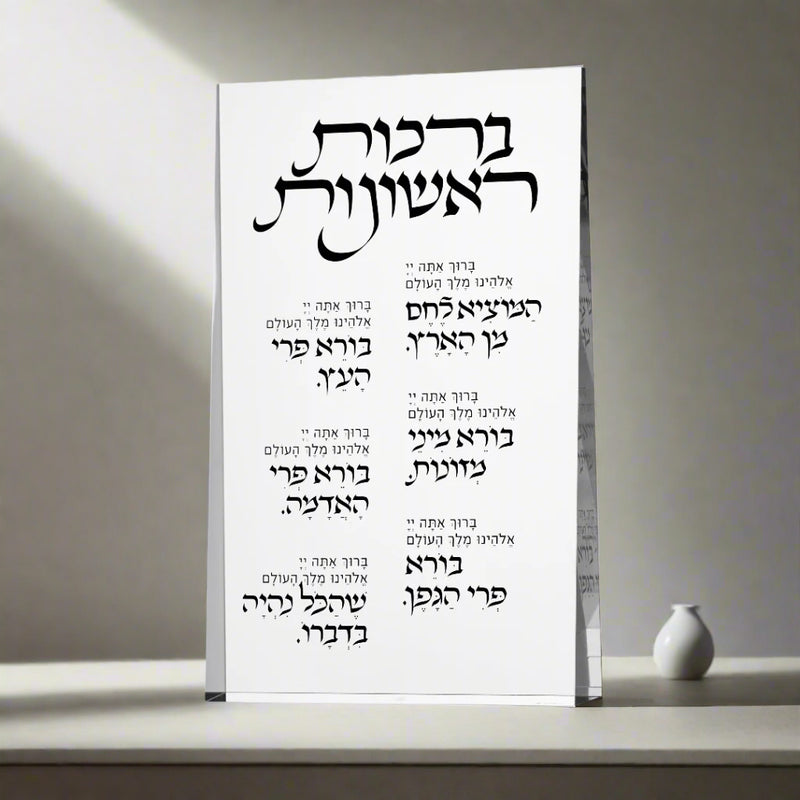 ברכות
ראשונות
בָּרוּךְ אַתָּה יְיָ
אֱלֹהֵינוּ מֶלֶךְ הָעוֹלָם
הַמּוֹצִיא לֶחֶם
מִן הָאָרֶץ.
בָּרוּךְ אַתָּה יְיָ
אֱלֹהֵינוּ מֶלֶךְ הָעוֹלָם
בּוֹרֵא מִינֵי
מְזוֹנוֹת.
בָּרוּךְ אַתָּה יְיָ
אֱלֹהֵינוּ מֶלֶךְ הָעוֹלָם
בּוֹרֵא
פְּרִי הַגָּפֶן.
בָּרוּךְ אַתָּה יְיָ
אֱלֹהֵינוּ מֶלֶךְ הָעוֹלָם
בּוֹרֵא פְּרִי
הָעֵץ.
בָּרוּךְ אַתָּה יְיָ
אֱלֹהֵינוּ מֶלֶךְ הָעוֹלָם
בּוֹרֵא פְּרִי
הָאֲדָמָה.
בָּרוּךְ אַתָּה יְיָ
אֱלֹהֵינוּ מֶלֶךְ הָעוֹלָם
שֶׁהַכֹּל נִהְיָה
בִּדְבָרוֹ.